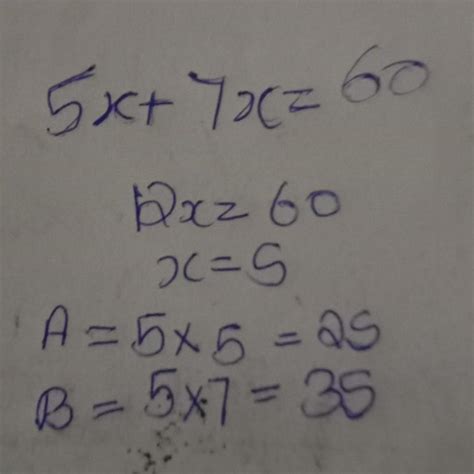 5x+ 7x= 60
12x= 60
x=5
A = 5x5 = 25
B = 5x7 = 35